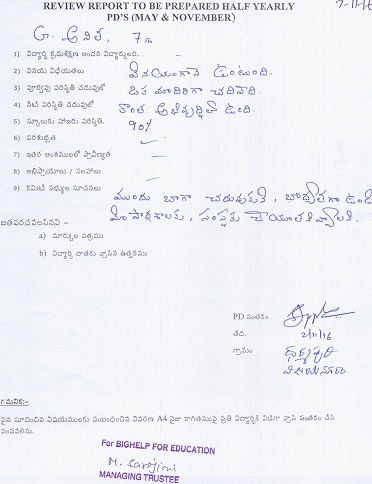 REVIEW REPORT TO BE PREPARED HALF YEARLY
PD'S (MAY & NOVEMBER)
G. అనిత, 7th
1) విద్యార్థి క్రమశిక్షణ అందరి విద్యార్థులది.
2) వినయ విధేయతలు వినయంగానే ఉంటుంది.
3) పూర్వపు పరిస్థితి చదువులో ఒక మాదిరిగా చదివేది.
4) నేటి పరిస్థితి చదువులో కొంత అభివృద్ధిలో ఉంది.
5) స్కూలుకు హాజరు పరిస్థితి. 90%
6) పరిశుభ్రత
7) ఇతర అంశములలో ప్రావీణ్యత
8) అభిప్రాయాలు / సలహాలు
9) కమిటీ సభ్యుల సూచనలు
ముందు బాగా చదువుకుని, బాధ్యతగా ఉండి
మా పాఠశాలకు, సంస్థకు చేయూతనివ్వాలి.
జతపరచవలసినవి :-
a) మార్కుల పత్రము
b) విద్యార్థి దాతకు వ్రాసిన ఉత్తరము
PD సంతకం
తేది. 2/11/16
గ్రామం ధర్మపురి
విజయనగరం
గమనిక:-
పైన సూచించిన విషయములకు సంబంధించిన వివరణ A4 సైజు కాగితముపై ప్రతి విద్యార్థికి విడిగా వ్రాసి సంతకం చేసి
పంపవలెను.
For BIGHELP FOR EDUCATION
M. Sarojini
MANAGING TRUSTEE